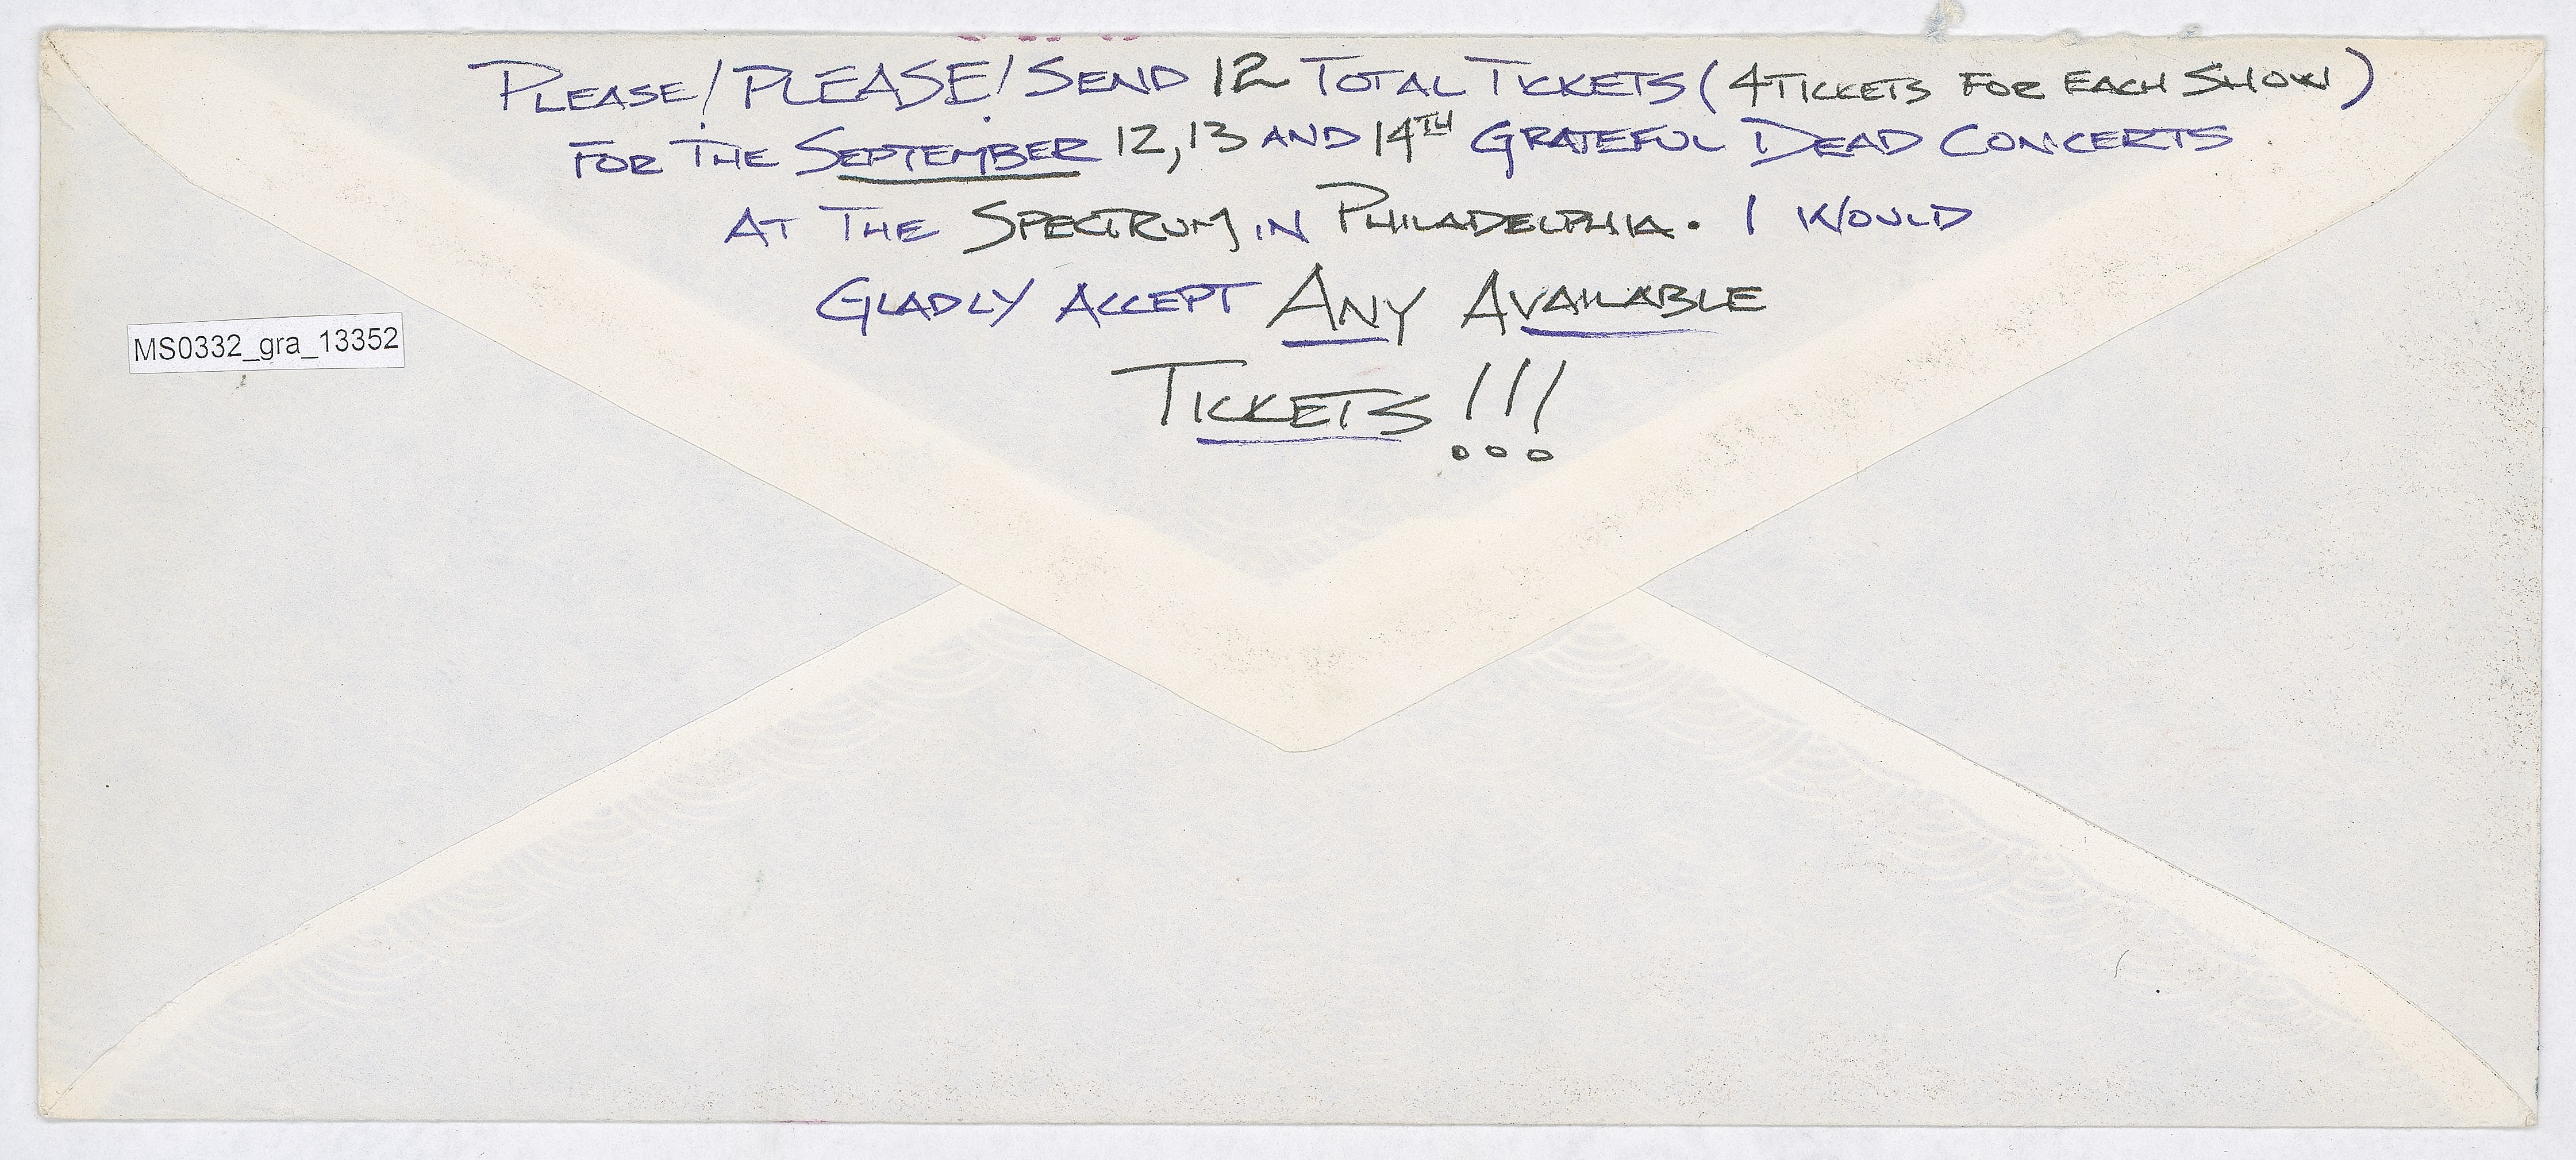 PLEASE! PLEASE! SEND 12 TOTAL TICKETS (4 TICKETS FOR EACH SHOW)
FOR THE SEPTEMBER 12, 13 AND 14TH GRATEFUL DEAD CONCERTS
AT THE SPECTRUM IN PHILADELPHIA. I WOULD
GLADLY ACCEPT ANY AVAILABLE
MS0332_gra_13352
TICKETS!!!